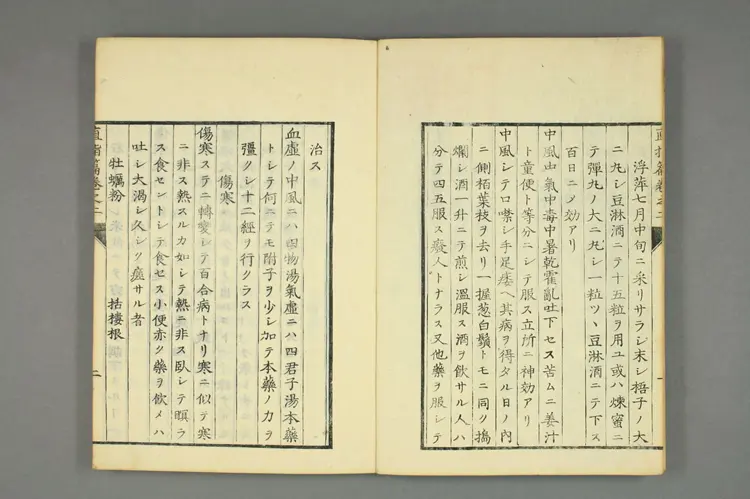 浮萍七月中旬ニ采リサラシ末シ梧子ノ大
ニ丸シ豆淋酒ニテ十五粒ヲ用ユ或ハ煉蜜ニ
テ彈丸ノ大ニ丸シ一粒ツヽ豆淋酒ニテ下ス
百日ニメ効アリ
中風中氣中毒中暑乾霍亂吐下セス苦ムニ姜汁
ト童便ト等分ニシテ服ス立所ニ神効アリ
中風シテロ噤シ手足痿ヘ其病ヲ得タル日ノ內
ニ側栢葉枝ヲ去リ一握葱白鬚トモニ同ク搗
爛シ酒一升ニテ煎シ溫服ス酒ヲ飲サル人ハ
分テ四五服ス癈人トナラス又他藥ヲ服シテ
直指篇卷之二
一
治ス
血虛ノ中風ニハ四物湯氣虛ニハ四君子湯本藥
トシテ何ニテモ附子ヲ少シ加テ本藥ノ力ヲ
彊クシ十二經ヲ行クラス
傷寒
傷寒ステニ轉變シテ百合病トナリ寒ニ似テ寒
ニ非ス熱スルカ如シテ熱ニ非ス臥シテ瞑ラ
ス食セントシテ食セス小便赤ク藥ヲ飲メハ
吐シ大渴シ久シク瘥サル者
牡蠣粉 括樓根
直指篇卷之二
二